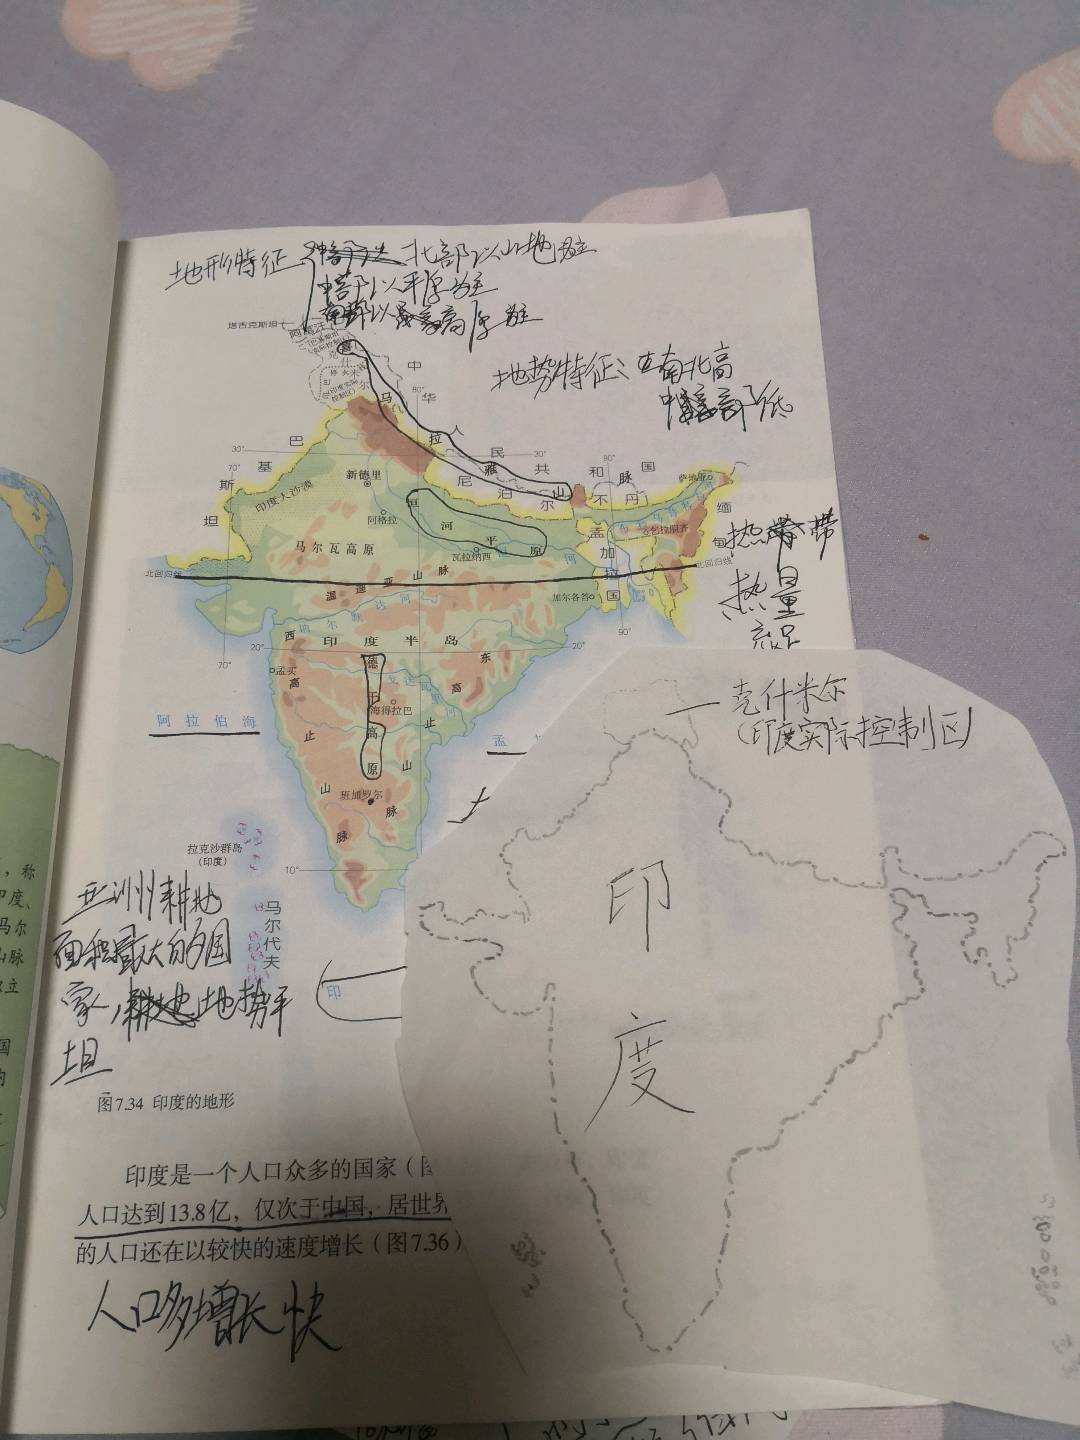 地形特征
北部以山地为主
中部以平原为主
南部以高原为主
塔吉克斯坦
地势特征:
南北高
中部低
中
华
人
民
共
和
国
80°
30°
30°
90°
70°
巴
基
斯
坦
喜
马
拉
雅
山
脉
尼
泊
尔
不
丹
缅
甸
萨地亚
新德里
印度大沙漠
阿格拉
恒
河
平
原
瓦拉纳西
马尔瓦高原
孟
加
拉
国
热带
热量
充足
北回归线
北回归线
温迪亚山脉
讷尔默达河
加尔各答
90°
西
印度半岛
20°
20°
70°
孟买
德
干
高
原
海得拉巴
东
高
止
山
脉
高
止
山
脉
阿拉伯海
孟
班加罗尔
拉克沙群岛
(印度)
10°
马
尔
代
夫
印
克什米尔
(印度实际控制区)
印
度
亚洲耕地
面积最大的国
家,地势平
坦
图7.34 印度的地形
印度是一个人口众多的国家(
人口达到13.8亿,仅次于中国,居世界
的人口还在以较快的速度增长(图7.36)
人口多增长快
,称
印度、
马尔
山脉
立
国